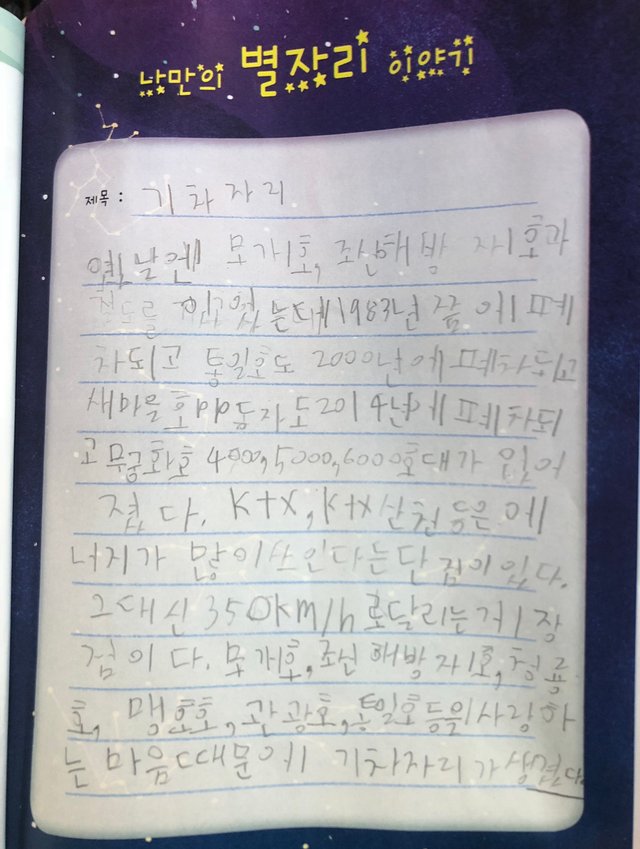 낭만의 별자리 이야기
제목 : 기차자리
옛날엔 모개호, 조선해방 자1호과
는데 1983년 쯤 에 폐
차되고 통일호도 2000년에 폐차되고
새마을호 마 동차도 2014년에 폐차되
고 무궁화호 4000, 5000, 6000호대가 있어
졌다. ktx, ktx산천 등은 에
너지가 많이 쓰인다는 단점이 있다.
그대신 350km/h로 달리는거 1장
점이다. 모개호, 조선해방자1호, 청룡
호, 맹호호, 관광호, 통일호등을 사랑하
는 마음때문에 기차자리가 생겼다.